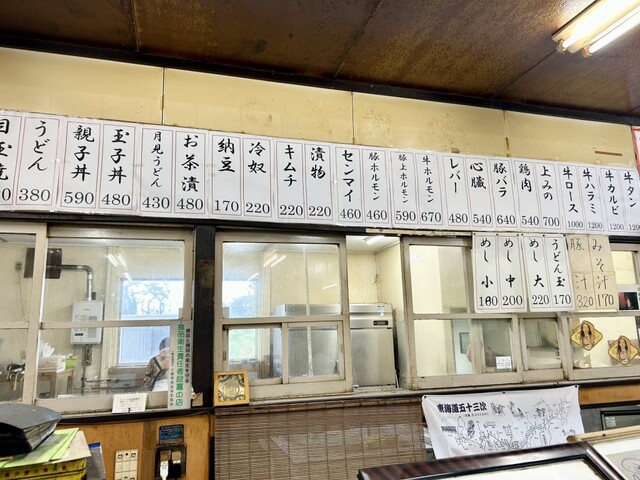 牛タン 1200
牛カルビ 1200
牛ハラミ 1200
牛ロース 1000
上みの 700
鶏肉 540
豚バラ 640
心臓 540
レバー 480
牛ホルモン 670
豚上ホルモン 590
豚ホルモン 460
センマイ 460
漬物 220
キムチ 220
冷奴 220
納豆 170
お茶漬 480
月見うどん 430
玉子丼 480
親子丼 590
うどん 380
目玉焼
みそ汁 170
豚汁 320
うどん玉 170
めし大 220
めし中 200
めし小 160
食品衛生責任者設置の店
東海道五十三次